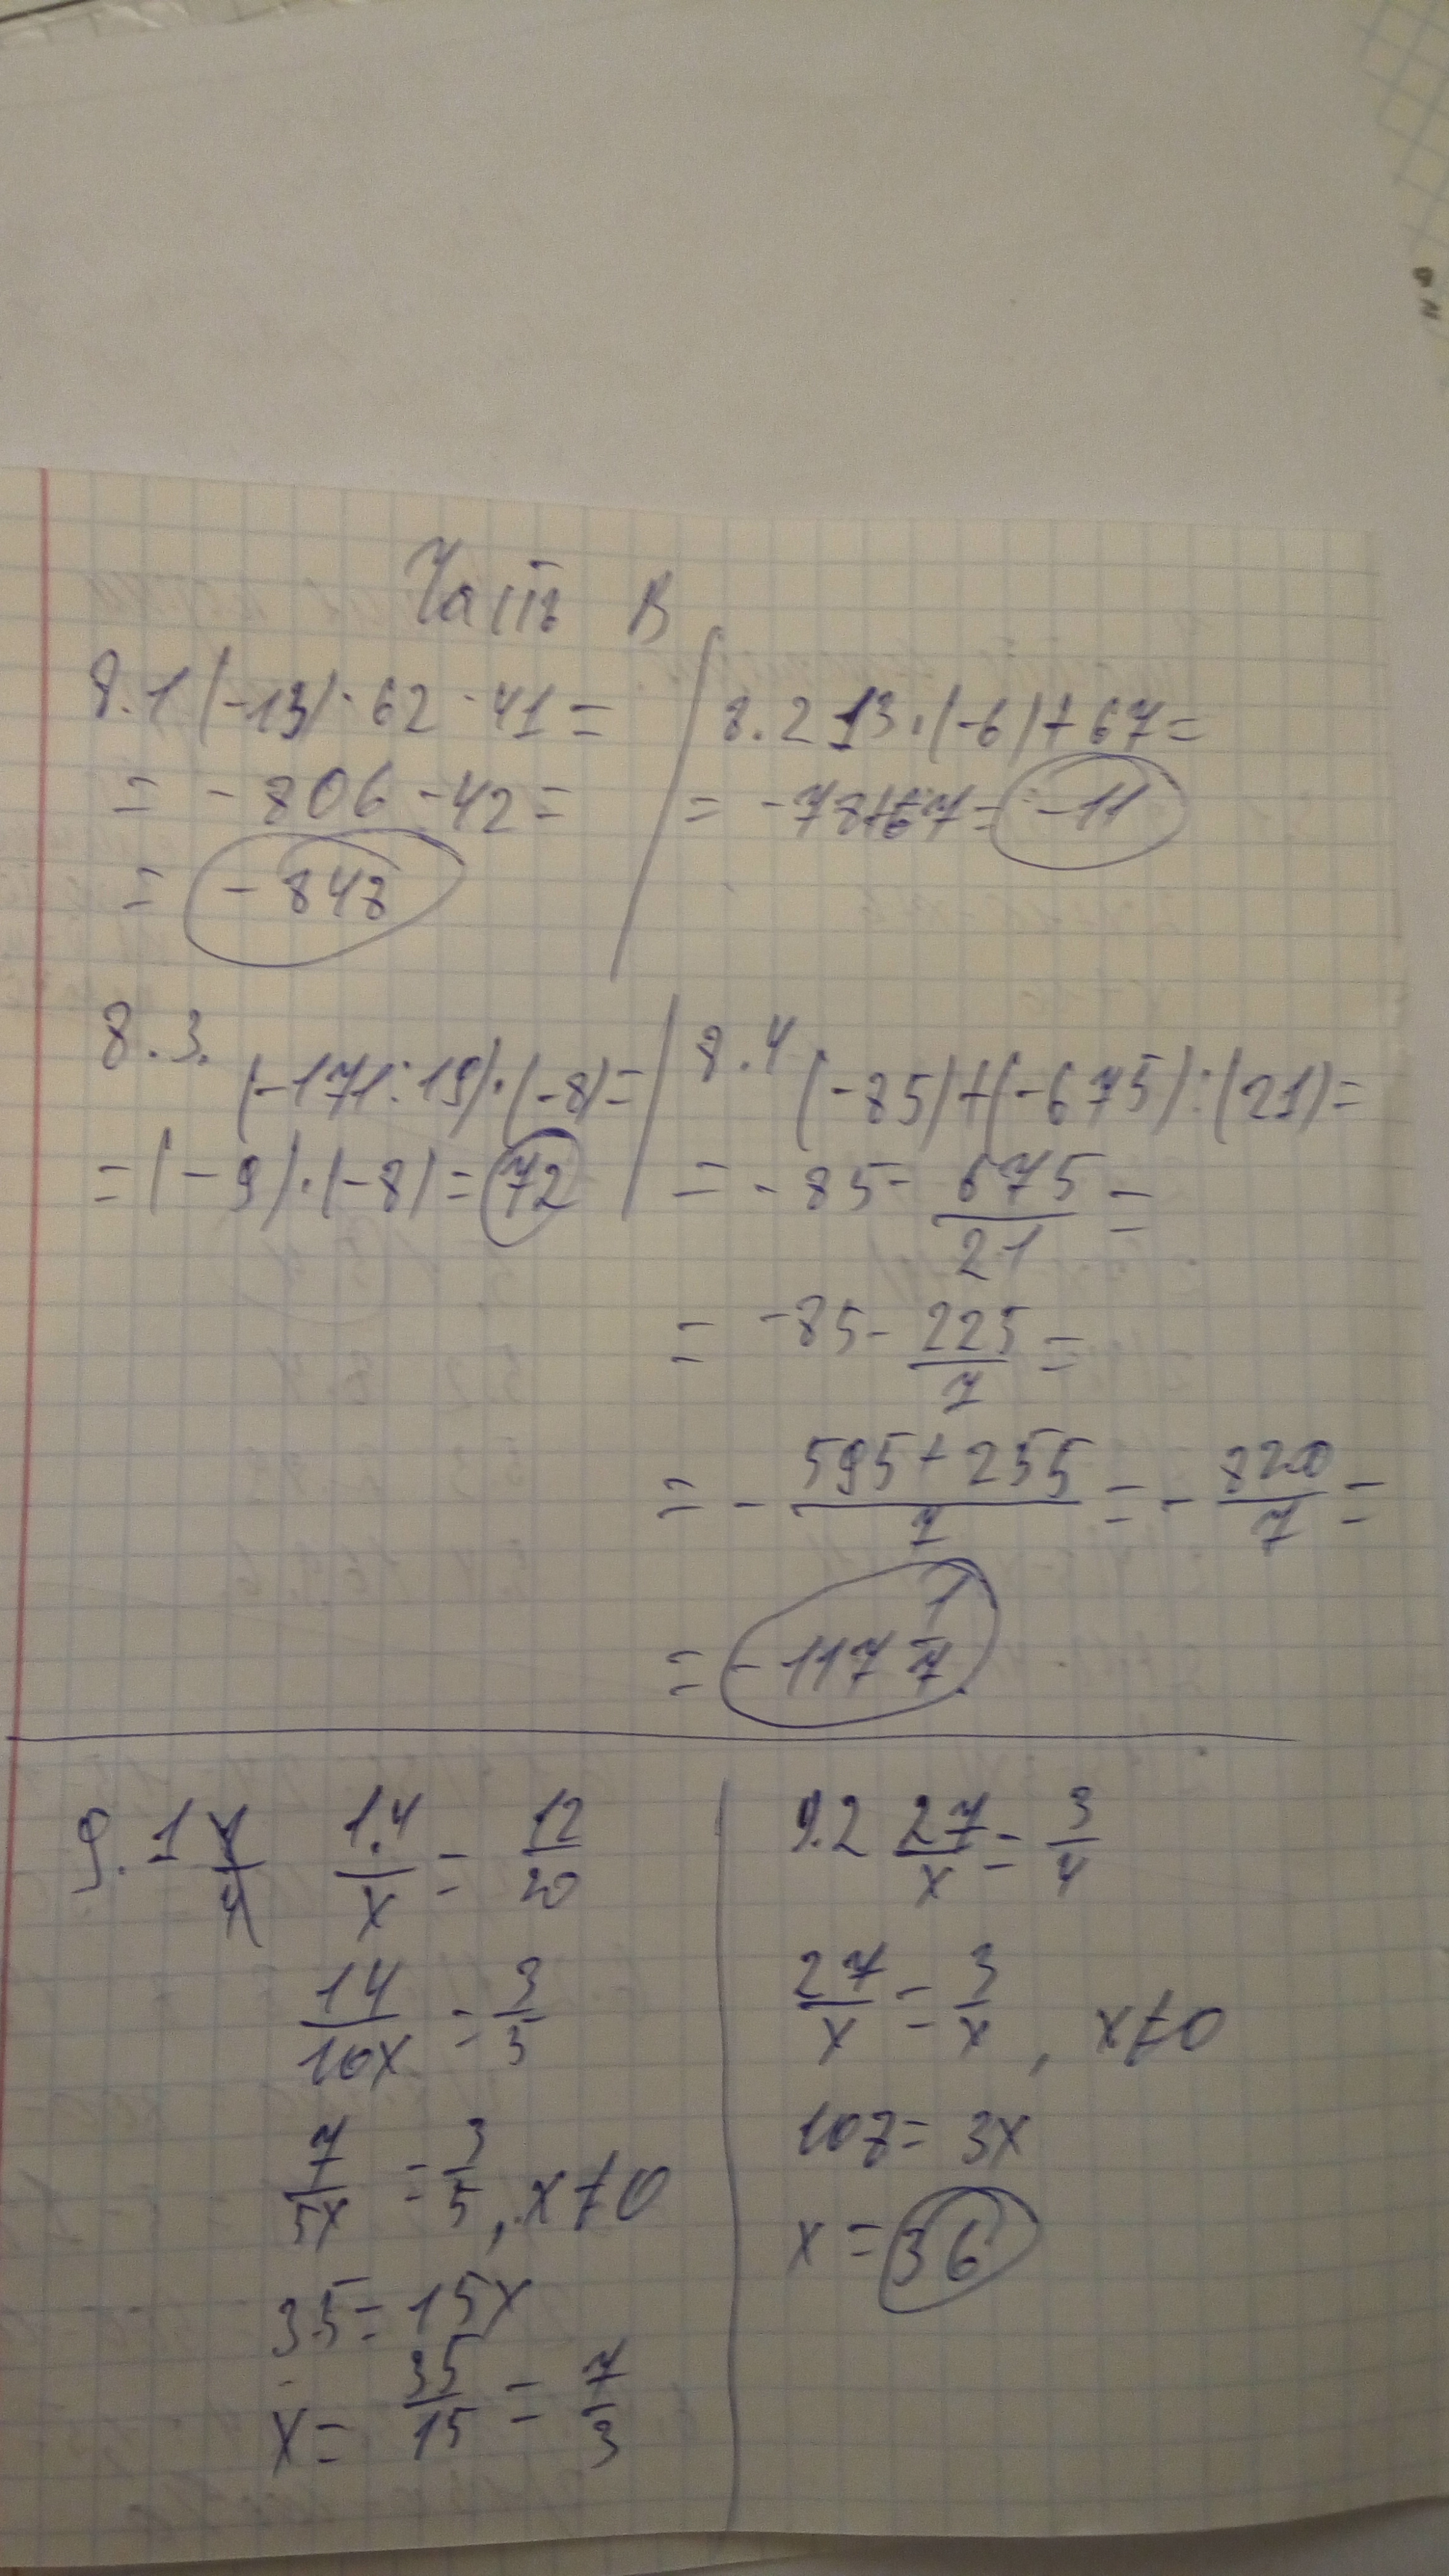 Часть В
8.1 (-13)·62-41=
= -806-42=
= -848
8.2 13·(-6)+67=
= -78+67= -11
8.3.
(-171:19)·(-8)=
=(-9)·(-8)=72
8.4
(-85)+(-675):(21)=
= -85- 675/21 =
= -85- 225/7 =
= - 595+255/7 = - 820/7 =
= -117 1/7
9.1 1.4/x = 12/20
14/10x = 3/5
7/5x = 3/5, x≠0
35=15x
x= 35/15 = 7/3
9.2 27/x = 3/4
27/x = 3/x, x≠0
108=3x
x=36